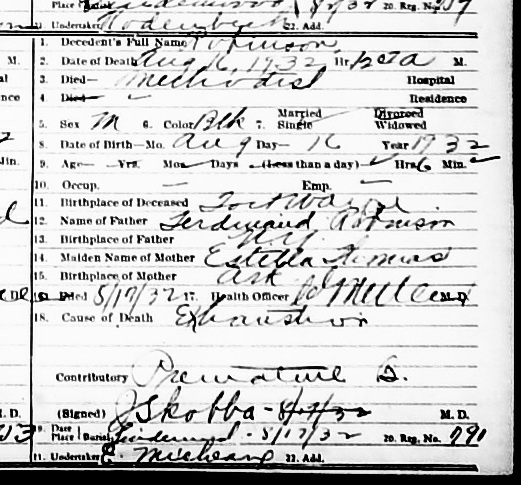 8/32 20. Reg. No.
21. Undertaker 22. Add.
1. Decedent's Full Name Robinson
2. Date of Death Aug 16, 1932 Hr. M.
3. Died— Methodist Hospital
4. Died— Residence
5. Sex M 6. Color Blk 7. Married Single Divorced Widowed
8. Date of Birth—Mo. Aug Day— 16 Year 1932
9. Age— Yrs. Mos. Days (Less than a day) Hrs 6 Min.
10. Occup. — Emp. —
11. Birthplace of Deceased Fort Wayne
12. Name of Father Ferdinand Robinson
13. Birthplace of Father
14. Maiden Name of Mother Estella Thomas
15. Birthplace of Mother Ark
16. Filed 8/17/32 17. Health Officer M.D.
18. Cause of Death Exhaustion
Contributory Premature B.
(Signed) J Skobba - 8/17/32 M. D.
19. Date Place Burial Lindenwood - 8/17/32 20. Reg. No. 791
21. Undertaker E. 22. Add.